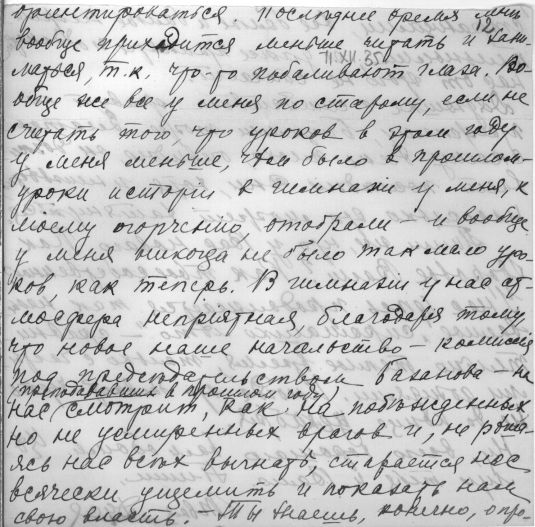 ориентироваться. Последнее время мнѣ
12
вообще приходится меньше читать и зани-
11 XII 35
маться, т.к. что-то побаливают глаза. Во-
обще же все у меня по старому, если не
считать того, что уроков в этом году
у меня меньше, чѣм было в прошлом-
уроки исторіи в гимназіи у меня, к
моему огорченію, отобрали - и вообще
у меня никогда не было так мало уро-
ков, как теперь. В гимназіи у нас ат-
мосфера непріятная, благодаря тому,
что новое наше начальство - комиссія
под предсѣдательством Базанова - на
(преподававших в прошлом году)
нас смотрит, как на побѣжденных
но не усмиренных врагов и, не рѣша-
ясь нас всѣх выгнать, старается нас
всячески ущемить и показать нам
свою власть. - Ты знаешь, конечно, о про-